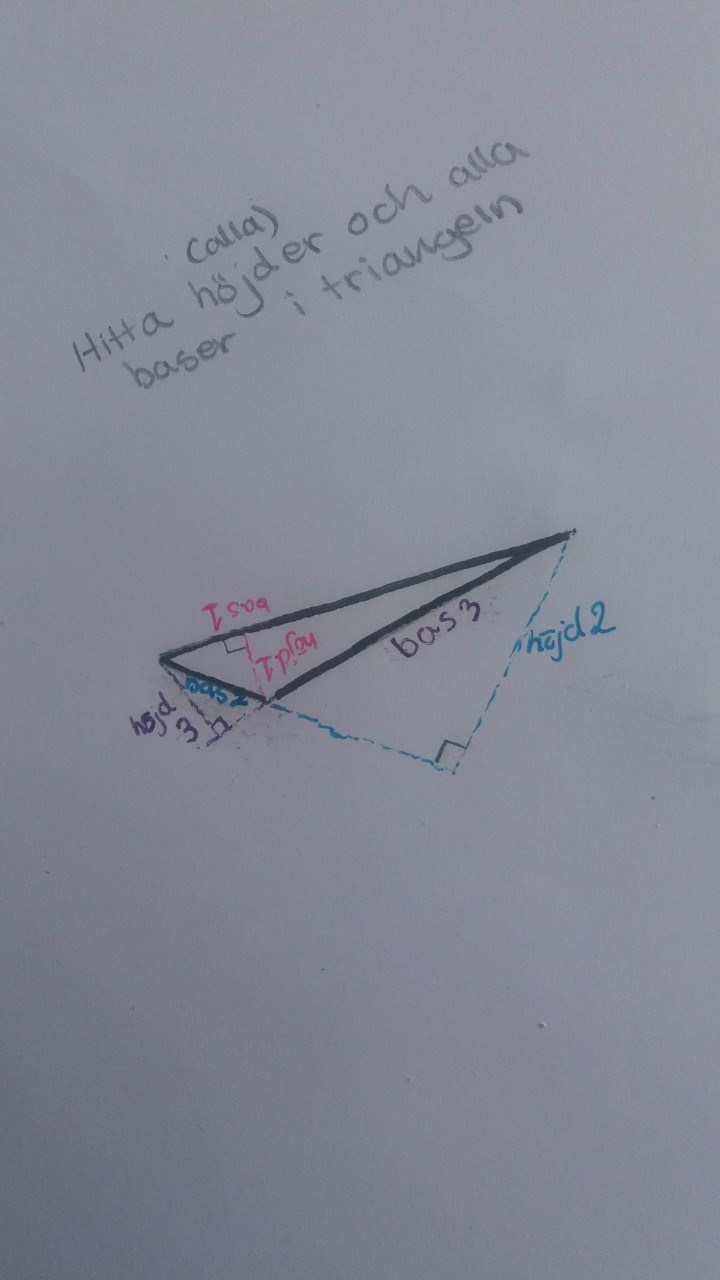 (alla)
Hitta höjder och alla
baser i triangeln
bas 1
höjd 1
bas 2
höjd
3
bas 3
höjd 2